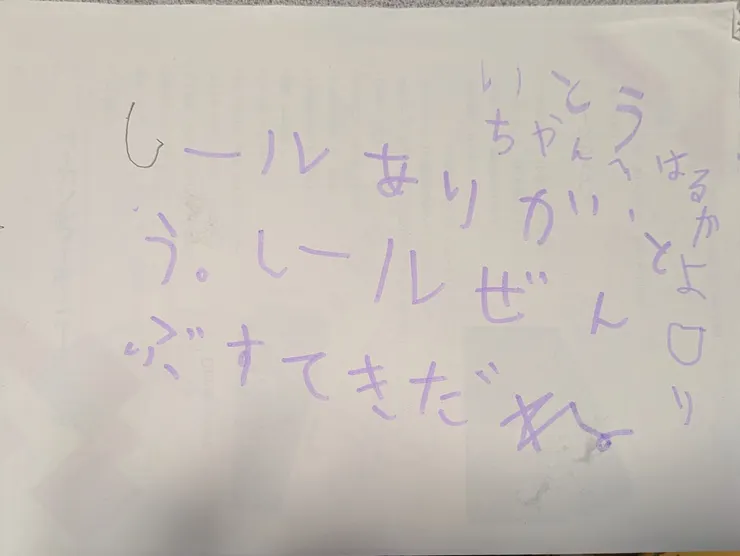 いとう
ちゃんへ
レールありがと
う。レールぜん
ぶすてきだね。
はるかよロリ